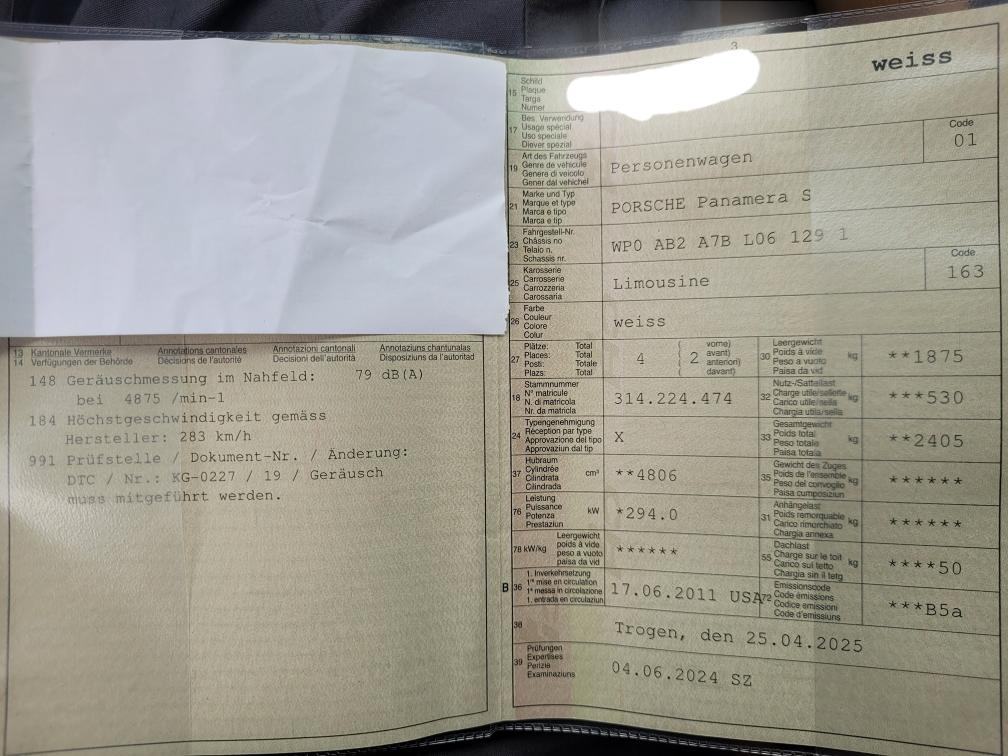 13 Kantonale Vermerke Annotations cantonales Annotazioni cantonali Annotaziuns chantunalas
14 Verfügungen der Behörde Décisions de l'autorité Decisioni dell'autorità Disposiziuns da l'autoritad
148 Geräuschmessung im Nahfeld: 79 dB(A)
bei 4875 /min-1
184 Höchstgeschwindigkeit gemäss
Hersteller: 283 km/h
991 Prüfstelle / Dokument-Nr. / Änderung:
DTC / Nr.: KG-0227 / 19 / Geräusch
muss mitgeführt werden.
3
weiss
15 Schild
Plaque
Targa
Numer
17 Bes. Verwendung
Usage spécial
Uso speciale
Diever spezial
19 Art des Fahrzeugs
Genre de véhicule
Genere di veicolo
Gener dal vehichel
Personenwagen
Code
01
21 Marke und Typ
Marque et type
Marca e tipo
Marca e tip
PORSCHE Panamera S
23 Fahrgestell-Nr.
Châssis no
Telaio n.
Schassis nr.
WP0 AB2 A7B L06 129 1
25 Karosserie
Carrosserie
Carrozzeria
Carossaria
Limousine
Code
163
26 Farbe
Couleur
Colore
Colur
weiss
27 Plätze: Total
Places: Total
Posti: Totale
Plazs: Total
4
( vorne)
( 2 avant)
( anteriori)
( davant)
30 Leergewicht
Poids à vide
Peso a vuoto
Paisa da vid
kg
**1875
18 Stammnummer
N° matricule
N. di matricola
Nr. da matricla
314.224.474
32 Nutz-/Sattellast
Charge utile/sellette
Carico utile/sella
Chargia utila/sella
kg
***530
24 Typengenehmigung
Réception par type
Approvazione del tipo
Approvaziun dal tip
X
33 Gesamtgewicht
Poids total
Peso totale
Paisa totala
kg
**2405
37 Hubraum
Cylindrée
Cilindrata
Cilindrada
cm³
**4806
35 Gewicht des Zuges
Poids de l'ensemble
Peso del convoglio
Paisa cumposiziun
kg
******
76 Leistung
Puissance
Potenza
Prestaziun
kW
*294.0
31 Anhängelast
Poids remorquable
Carico rimorchiato
Chargia annexa
kg
******
78 kW/kg
Leergewicht
poids à vide
peso a vuoto
paisa da vid
******
55 Dachlast
Charge sur le toit
Carico sul tetto
Chargia sin il tetg
kg
****50
B 36 1. Inverkehrsetzung
1re mise en circulation
1a messa in circolazione
1. entrada en circulaziun
17.06.2011 USA
72 Emissionscode
Code émissions
Codice emissioni
Code d'emissiuns
***B5a
38
Trogen, den 25.04.2025
39 Prüfungen
Expertises
Perizie
Examinaziuns
04.06.2024 SZ